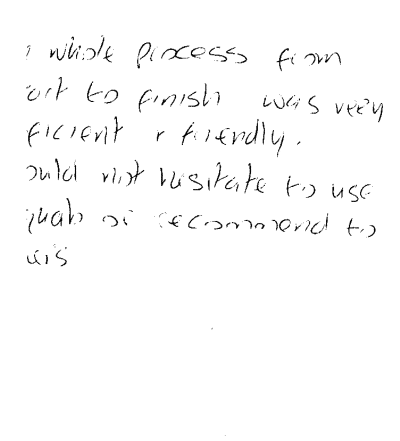 whole process from
to finish was very
ficient & friendly.
ould not hesitate to use
or recommend to